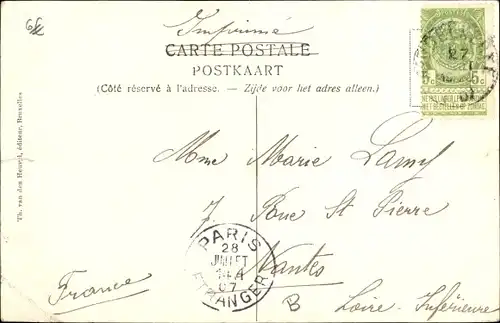 Imprimé
CARTE POSTALE
POSTKAART
(Côté réservé à l'adresse. — Zijde voor het adres alleen.)
5c 5c
NE PAS LIVRER LE DIMANCHE
NIET BESTELLEN OP ZONDAG
27
07
Th. van den Heuvel, éditeur, Bruxelles
Mme Marie Lamy
7. Rue St Pierre
Nantes
Loire-Inférieure
France
PARIS
28
JUILLET
07
ETRANGER
B